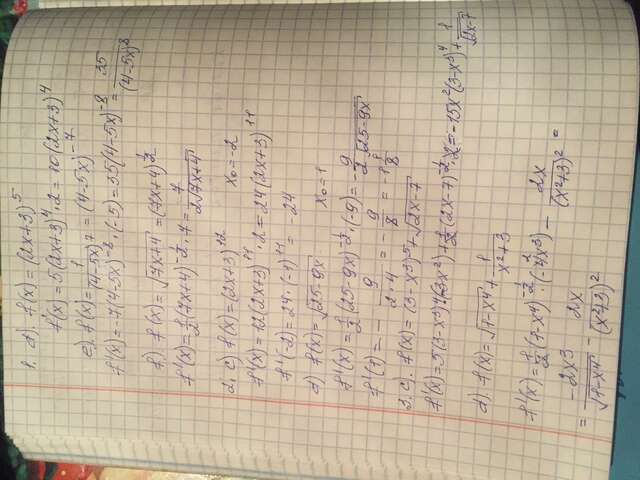 1. d). f(x) = (2x+3)^5
f'(x) = 5(2x+3)^4 · 2 = 10(2x+3)^4
e) f(x) = 1/(4-5x)^7 = (4-5x)^-7
f'(x) = -7(4-5x)^-8 · (-5) = 35(4-5x)^-8 = 35/(4-5x)^8
f). f(x) = √7x+4 = (7x+4)^1/2
f'(x) = 1/2(7x+4)^-1/2 · 7 = 7/2√7x+4
2. c) f(x) = (2x+3)^12 x₀ = -2
f'(x) = 12(2x+3)^11 · 2 = 24(2x+3)^11
f'(-2) = 24 · (-1)^11 = -24
d) f(x) = √25-9x x₀ = 1
f'(x) = 1/2(25-9x)^-1/2 · (-9) = -9/2√25-9x
f'(1) = -9/2·4 = -9/8 = -1 1/8
3. c). f(x) = (3-x³)^5 + √2x-7
f'(x) = 5(3-x³)^4(-3x²) + 1/2(2x-7)^-1/2 · 2 = -15x²(3-x³)^4 + 1/√2x-7
d) f(x) = √7-x⁴ + 1/x²+3
f'(x) = 1/2(7-x⁴)^-1/2(-4x³) - 2x/(x²+3)² =
= -2x³/√7-x⁴ - 2x/(x²+3)²